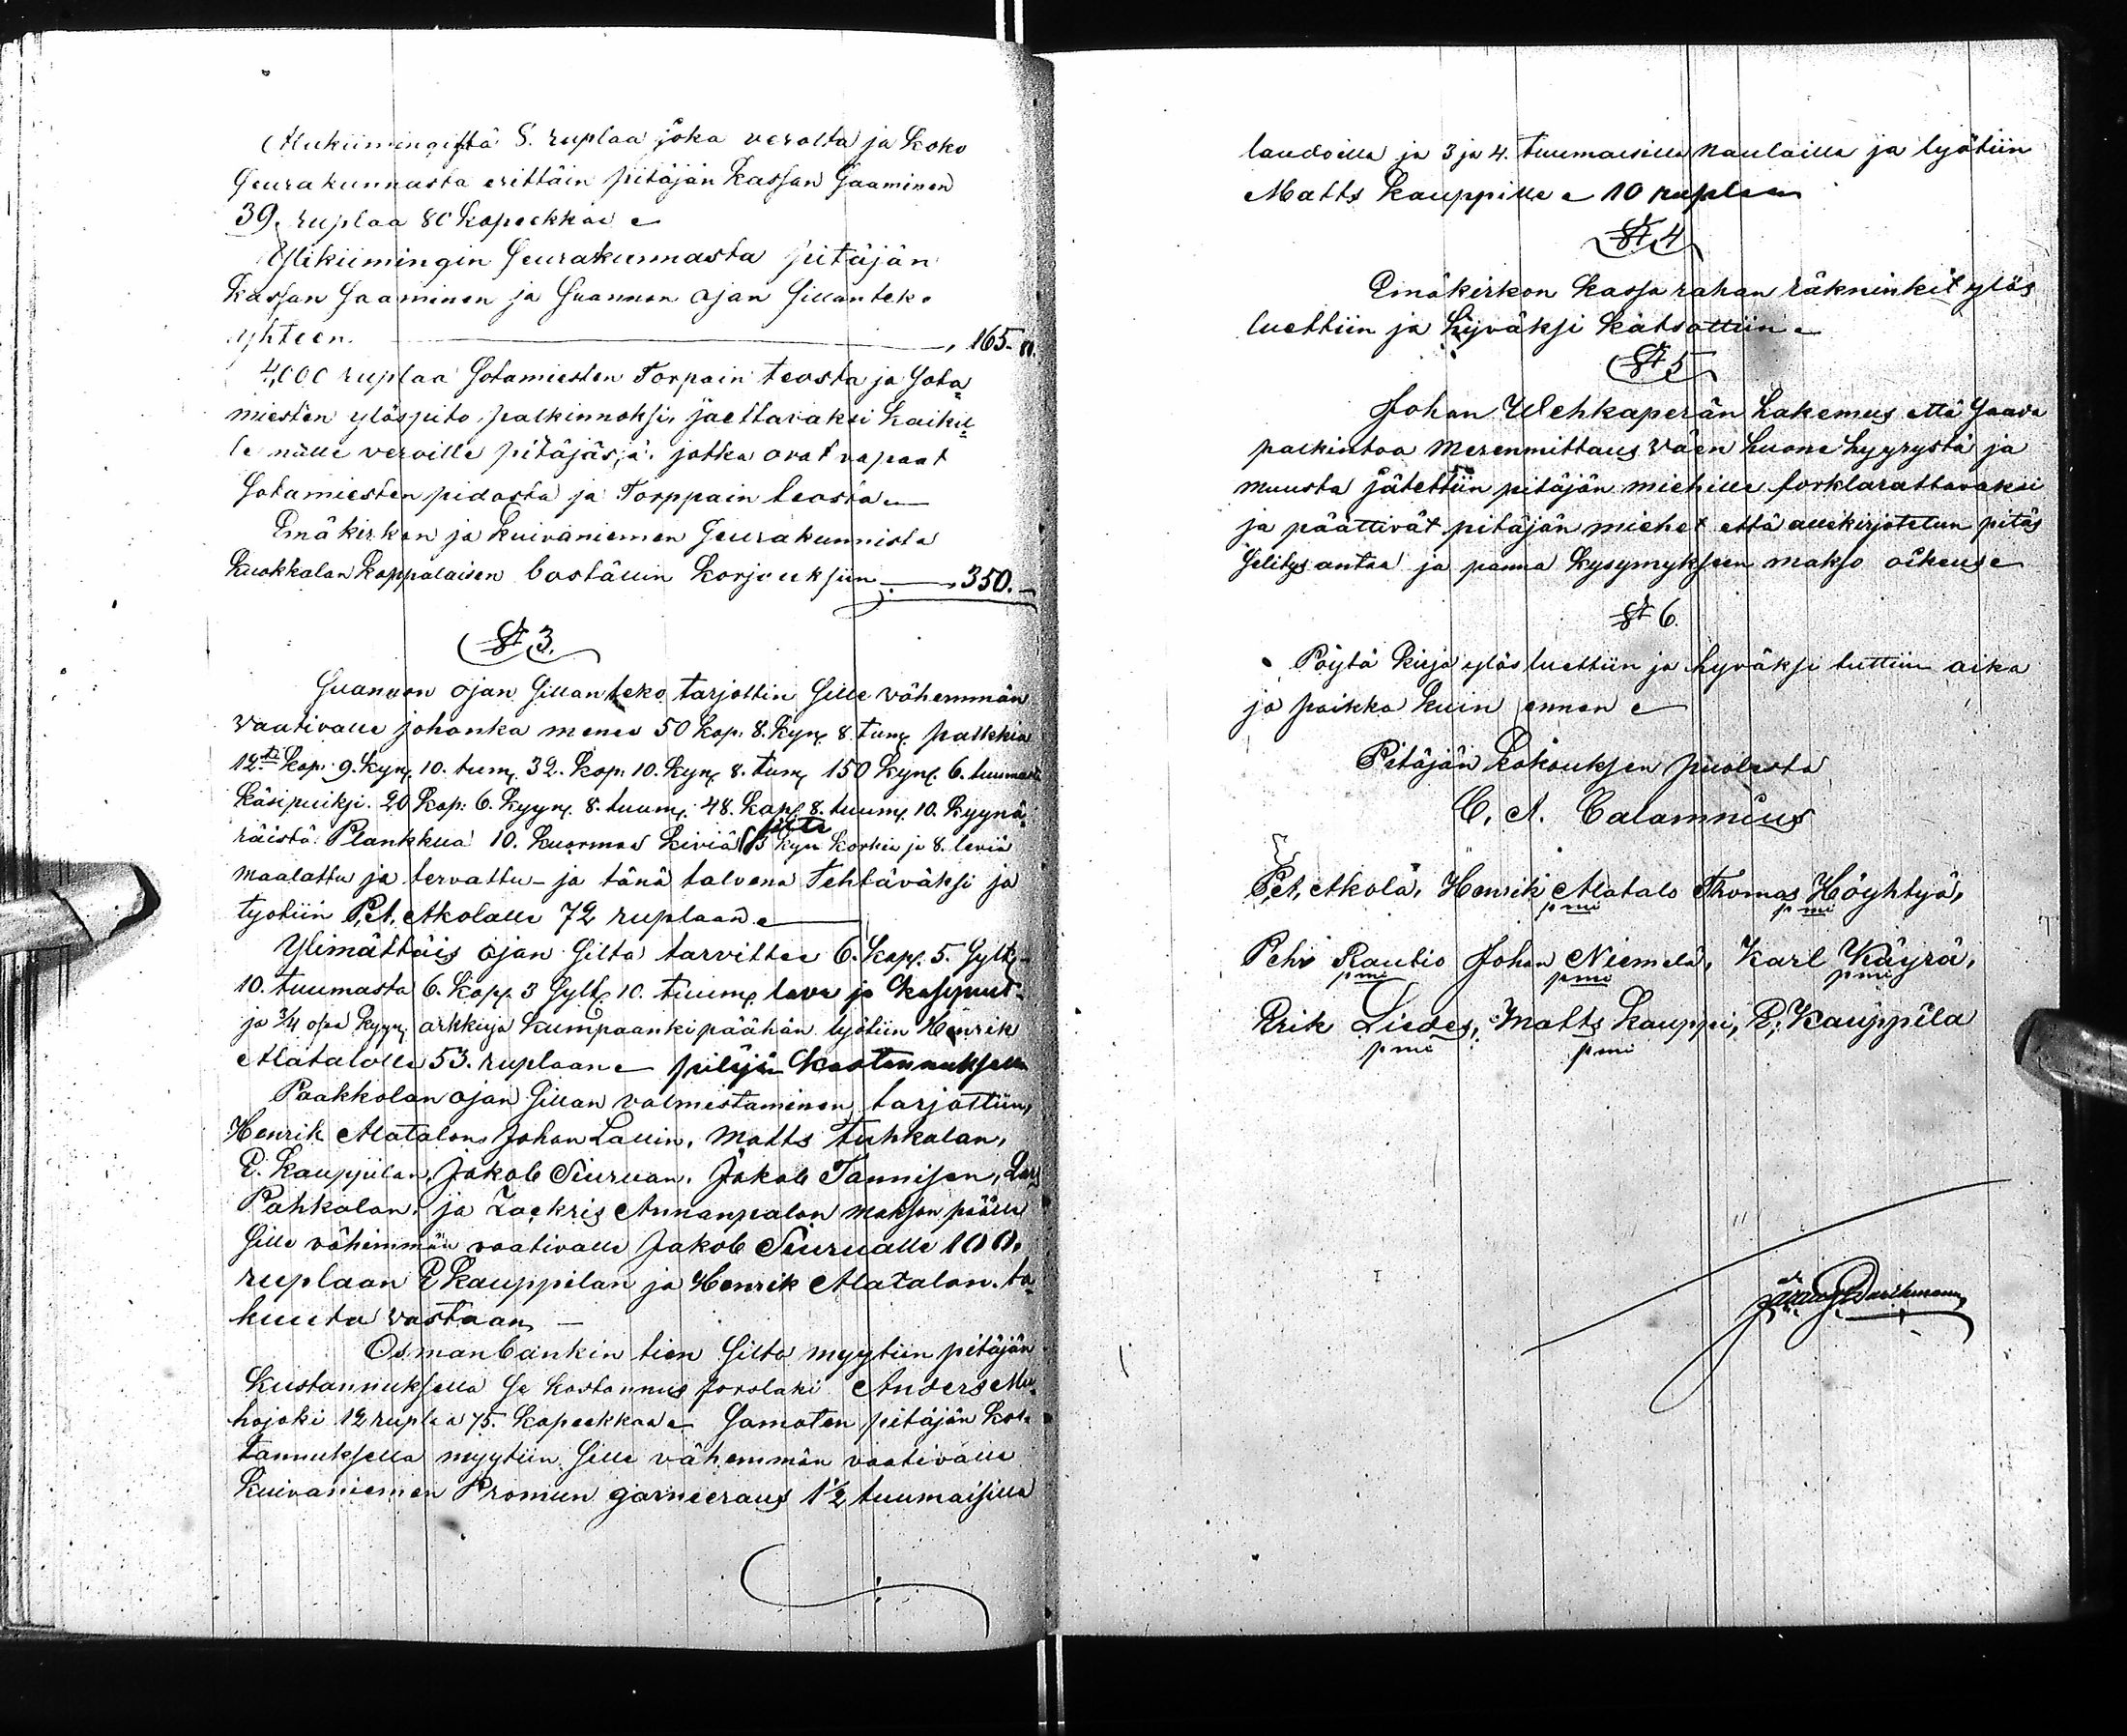 Alukiimingistä 8. ruplaa joka verolta ja koko
Seurakunnasta erittäin pitäjän kassan Saaminen
39. ruplaa 80 kopeekkaa
Ylikiimingin Seurakunnasta pitäjän
kassan Saaminen ja Suannon ojan Sillanteko
yhteen , 165.
4,000 ruplaa Sotamiesten Torpain teosta ja Sota=
miesten ylöspito palkinnoksi, jaettavaksi kaikil=
le niille veroille pitäjäsjä, jotka ovat vapaat
Sotamiesten pidosta ja Torppain teosta
Emäkirkon ja Kuivaniemen Seurakunnista
Kuokkalan kappalaisen boställin korjouksiin , 350.
§ 3.
Suannon ojan Sillanteko tarjottin Sille vähemmän
vaativalle johonka menee 50 kap. 8. kyn 8 tum. palkkia
12 kap. 9. kyn 10. tum 32. kap. 10. kyn 8. tum 150 kyn 6. tuumasta
käsipuiksi. 20 kap: 6. kyyn 8. tuum 48. kap 8. tuum 10. kyynä=
räistä Plankkua 10. kuormaa kiviä silta 3 kyn korkia ja 8. leviä
maalattu ja tervattu ja tänä talvena tehtäväksi ja
lyötiin Pet. Akolalle 72 ruplaan
Ylimättäis ojan Silta tarvittee 6. kapp. 5. Sylt
10. tuumasta 6. kapp 3 Sylt 10. tuum lava ja käsipuut
ja 3/4 osaa kyyn arkkuja kumpaanki päähän lyötiin Henrik
Alatalolle 53. ruplaan pitäjän kostannuksella
Paakkolan ojan Sillan valmistaminen tarjottiin,
Henrik Alatalon, Johan Lallin, Matts Tuhkalan,
E. Kauppilan, Jakob Siuruan, Jakob Tannisen, Lars
Pahkalan, ja Zackris Annanpalon makson päälle
Sille vähimmän vaativalle Jakob Siurualle 100.
ruplaan E Kauppilan ja Henrik Alatalon ta=
kuuta vastaan
Osmanbankin tien Silta myytiin pitäjän
kustannuksella Se kostannus forslaki Anders Mu=
hojoki 12 ruplaa 75. kopeekkaa Samaten pitäjän kos=
tannuksella myytiin Sille vähemmän vaativalle
Kuivaniemen Promun garneeraus 1 1/2 tuumaisilla
laudoilla ja 3 ja 4. tuumaisilla nauloilla ja lyötiin
Matts Kauppille 10 ruplaan
§ 4
Emäkirkon kassa rahan räkninkit ylös
luettiin ja hyväksi katsottiin
§ 5
Johan Wehkaperän hakemus että Saada
palkintoa merenmittaus väen huone hyyrystä ja
muusta jätettiin pitäjän miehille forklarattavaksi
ja päättivät pitäjän miehet että allekirjotetun pitäs
Selitys antaa ja panna kysymykseen makso oikeus
§ 6.
Pöytä kirja ylös luettiin ja hyväksi tuttiin aika
ja paikka kuin ennen
Pitäjän kokouksen puolesta
C. A. Calamnius
Pet. Akola, Henrik Alatalo Thomas Höyhtyä,
Pehr Rautio Johan Niemelä, Karl Käyrä,
Erik Liedes, Matts Kauppi, E. Kauppila